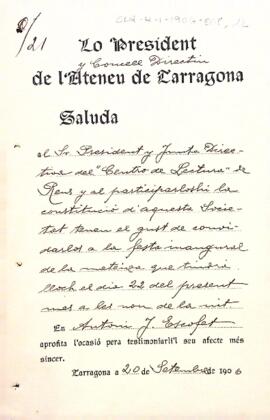 D/21
Lo President
y Concell Directiu
de l'Ateneu de Tarragona
Saluda
al Sr. President y Junta Direc-
tiva del "Centro de Lectura" de
Reus y al participarloshi la
constitució d'aquesta Socie-
tat tenen el gust de convi-
darlos a la festa inaugural
de la mateixa que tindrá
lloch el dia 22 del present
mes a les nou de la nit.
En Antoni J. Escofet
aprofita l'ocasió pera testimoniarli'l seu afecte més
sincer.
Tarragona a 20 de Setembre de 1906